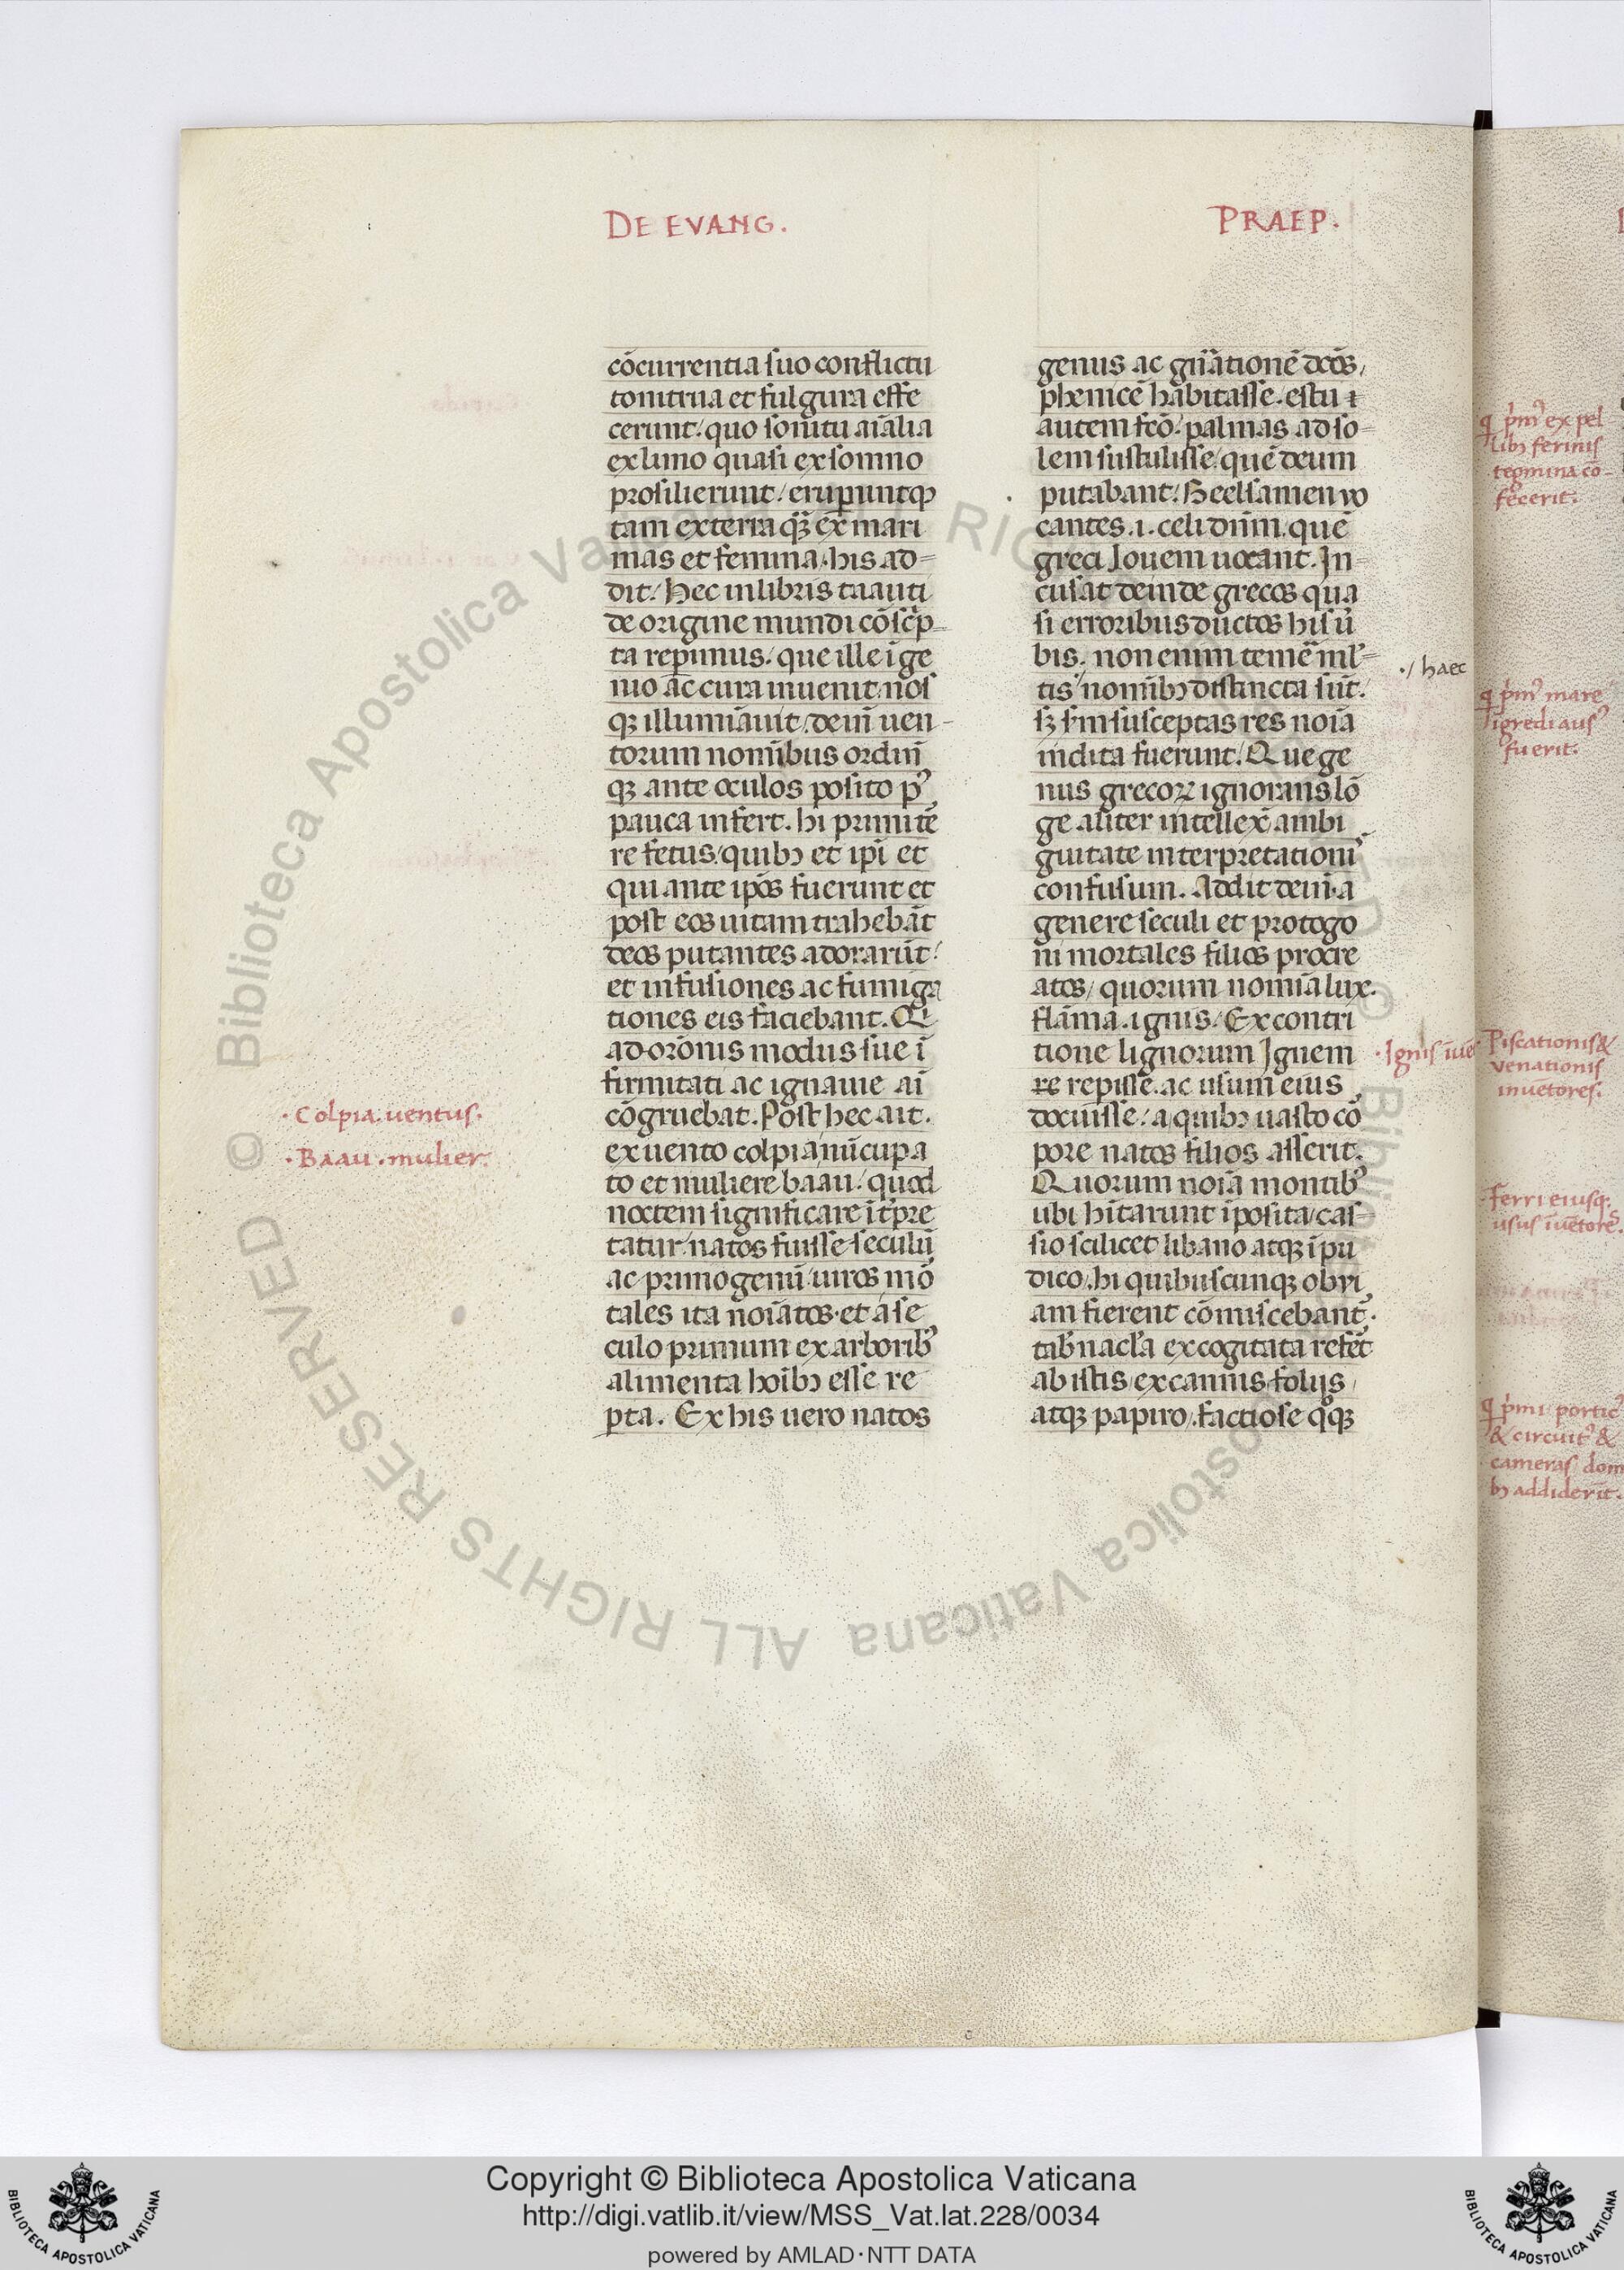 DE EVANG.
PRAEP.
cōcurrentia suo conflictu
tonitrua et fulgura effe
cerunt/ quo sonitu aīalia
ex limo quasi ex somno
prosilierunt/ eruperuntqꝫ
tam ex terra qꝫ̄ ex mari
mas et femina. his ad=
dit/ Hec in libris taauti
de origine mundi cōsc̄p=
ta reperimus/ que ille īge
nio ac cura inuenit. nos
qꝫ illumiāuit. deiñ uen-
torum nomībus ordiñ
qꝫ ante oculos posito p⁹
pauca infert. hi primi te
re fetus/ quibꝫ et ip̄i et
qui ante ip̄os fuerunt et
post eos uitam trahebāt
deos putantes adorarūt/
et infusiones ac fumiga
tiones eis faciebant. Q̄
adorōnis modus sue ī
firmitati ac ignauie aī
cōgruebat. Post hec ait.
ex uento colpia nūcupa
to et muliere baau/ quod
noctem significare īt̄pre
tatur. natos fuisse seculū
ac primogenū uiros mō
tales ita noīatos. et a se
culo primum ex arborib⁹
alimenta hoībꝫ esse re
pta. Ex his uero natos
genus ac gn̄ationē dc̄os,
phenicē habitasse. estu
autem fc̄o/ palmas ad so=
lem sustulisse/ quē deum
putabant/ Beelsamen uo
cantes .i. celi dn̄m. quē
greci Iouem uocant. In
cusat deinde grecos qua
si erroribus ductos his ū
bis. non enim teme ml̄=
tis nomībꝫ distincta sūt/
sꝫ s̄m susceptas res noīa
indita fuerunt/ Que ge
nus grecoꝝ ignorans lō
ge aliter intellex̄ ambi
guitate interpretationī
confusum. Addit deiñ. a
genere seculi et protogo
ni mortales filios procre
atos/ quorum nomīa lux.
flāma. ignis/ Ex contri
tione lignorum Ignem
re repisse. ac usum eius
docuisse/ a quibꝫ uasto cō
pore natos filios asserit.
Quorum noīa montib⁹
ubi hītarunt īposita/ cas
sio scilicet libano atqꝫ īpu
dico. hi quibuscunqꝫ obui
am fierent cōmiscebant⁹.
tab̄nacl̄a excogitata refēt
ab istis/ ex cannis foliis/
atqꝫ papiro. factiose qͦqꝫ
·Colpia. uentus.
·Baau. mulier.
./ haec
·Ignis īuē
q̄ p̄m⁹ ex pel
libꝫ ferinis
tegmina cō-
fecerit.
q̄ p̄m⁹ mare
īgredi aus⁹
fuerit.
Piscationis &
venationis
inuētores.
ferri eiusqꝫ
usus īuētore
q̄ p̄mi portic⁹
& circuit⁹ &
cameras dom
bꝫ addiderīt.
© Biblioteca Apostolica Vaticana ALL RIGHTS RESERVED © Biblioteca Apostolica Vaticana ALL RIGHTS RESERVED
Copyright © Biblioteca Apostolica Vaticana
http://digi.vatlib.it/view/MSS_Vat.lat.228/0034
powered by AMLAD·NTT DATA
BIBLIOTECA APOSTOLICA VATICANA
BIBLIOTECA APOSTOLICA VATICANA